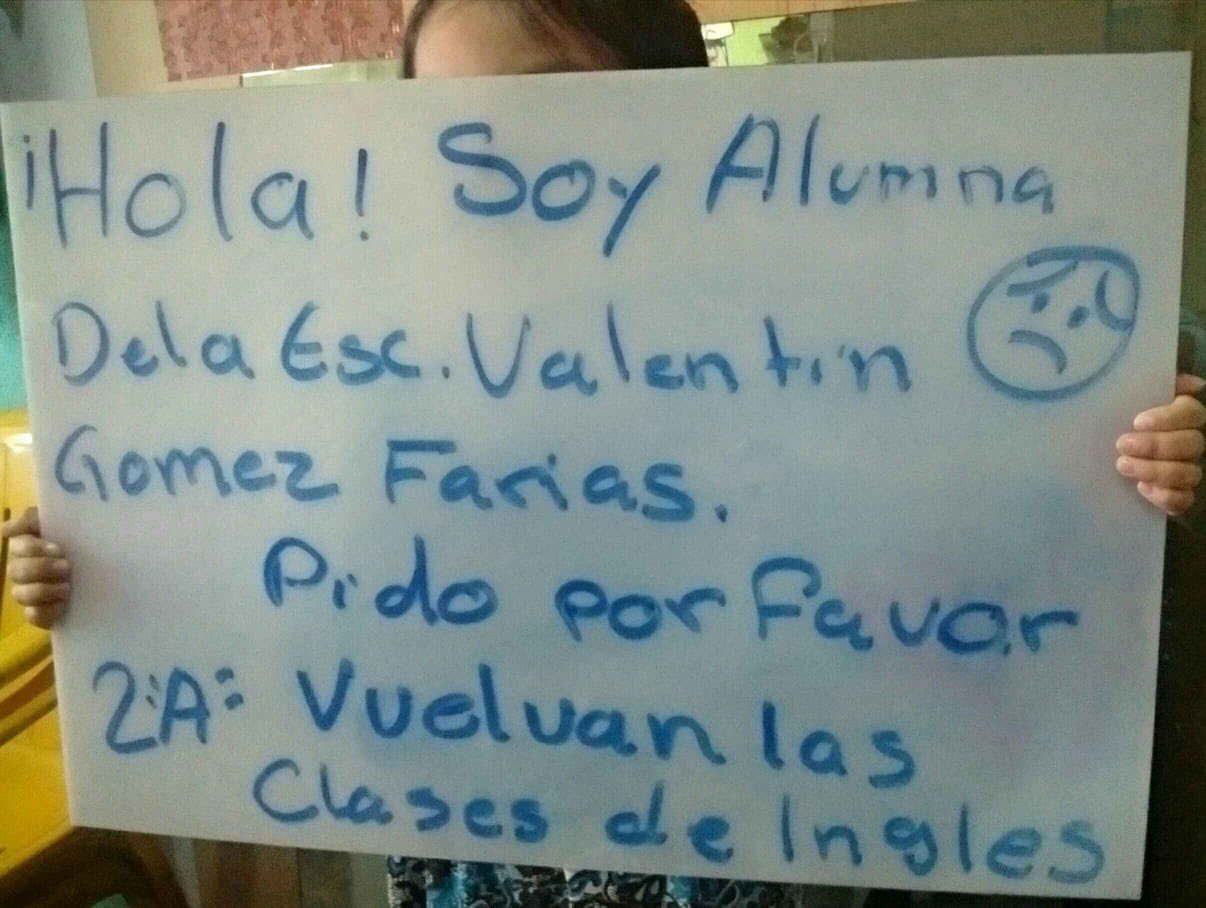 ¡Hola! Soy Alumna
De la Esc. Valentin
Gomez Farias.
Pido por Favor
2:A: Vuelvan las
Clases de Ingles